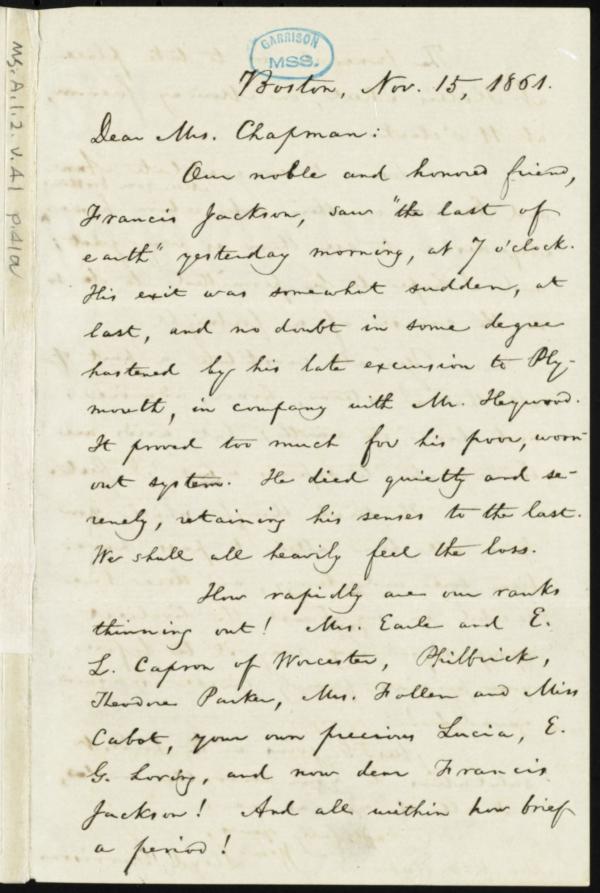 GARRISON
MSS.
Ms.A.1.2.v.41 p.41a
Boston, Nov. 15, 1861.
Dear Mrs. Chapman:
Our noble and honored friend,
Francis Jackson, saw "the last of
earth" yesterday morning, at 7 o'clock.
His exit was somewhat sudden, at
last, and no doubt in some degree
hastened by his late excursion to Ply-
mouth, in company with Mr. Heywood.
It proved too much for his poor, worn-
out system. He died quietly and se-
renely, retaining his senses to the last.
We shall all heavily feel the loss.
How rapidly are our ranks
thinning out! Mrs. Earle and E.
L. Capron of Worcester, Philbrick,
Theodore Parker, Mrs. Follen and Miss
Cabot, your own precious Lucia, E.
G. Loring, and now dear Francis
Jackson! And all within how brief
a period!